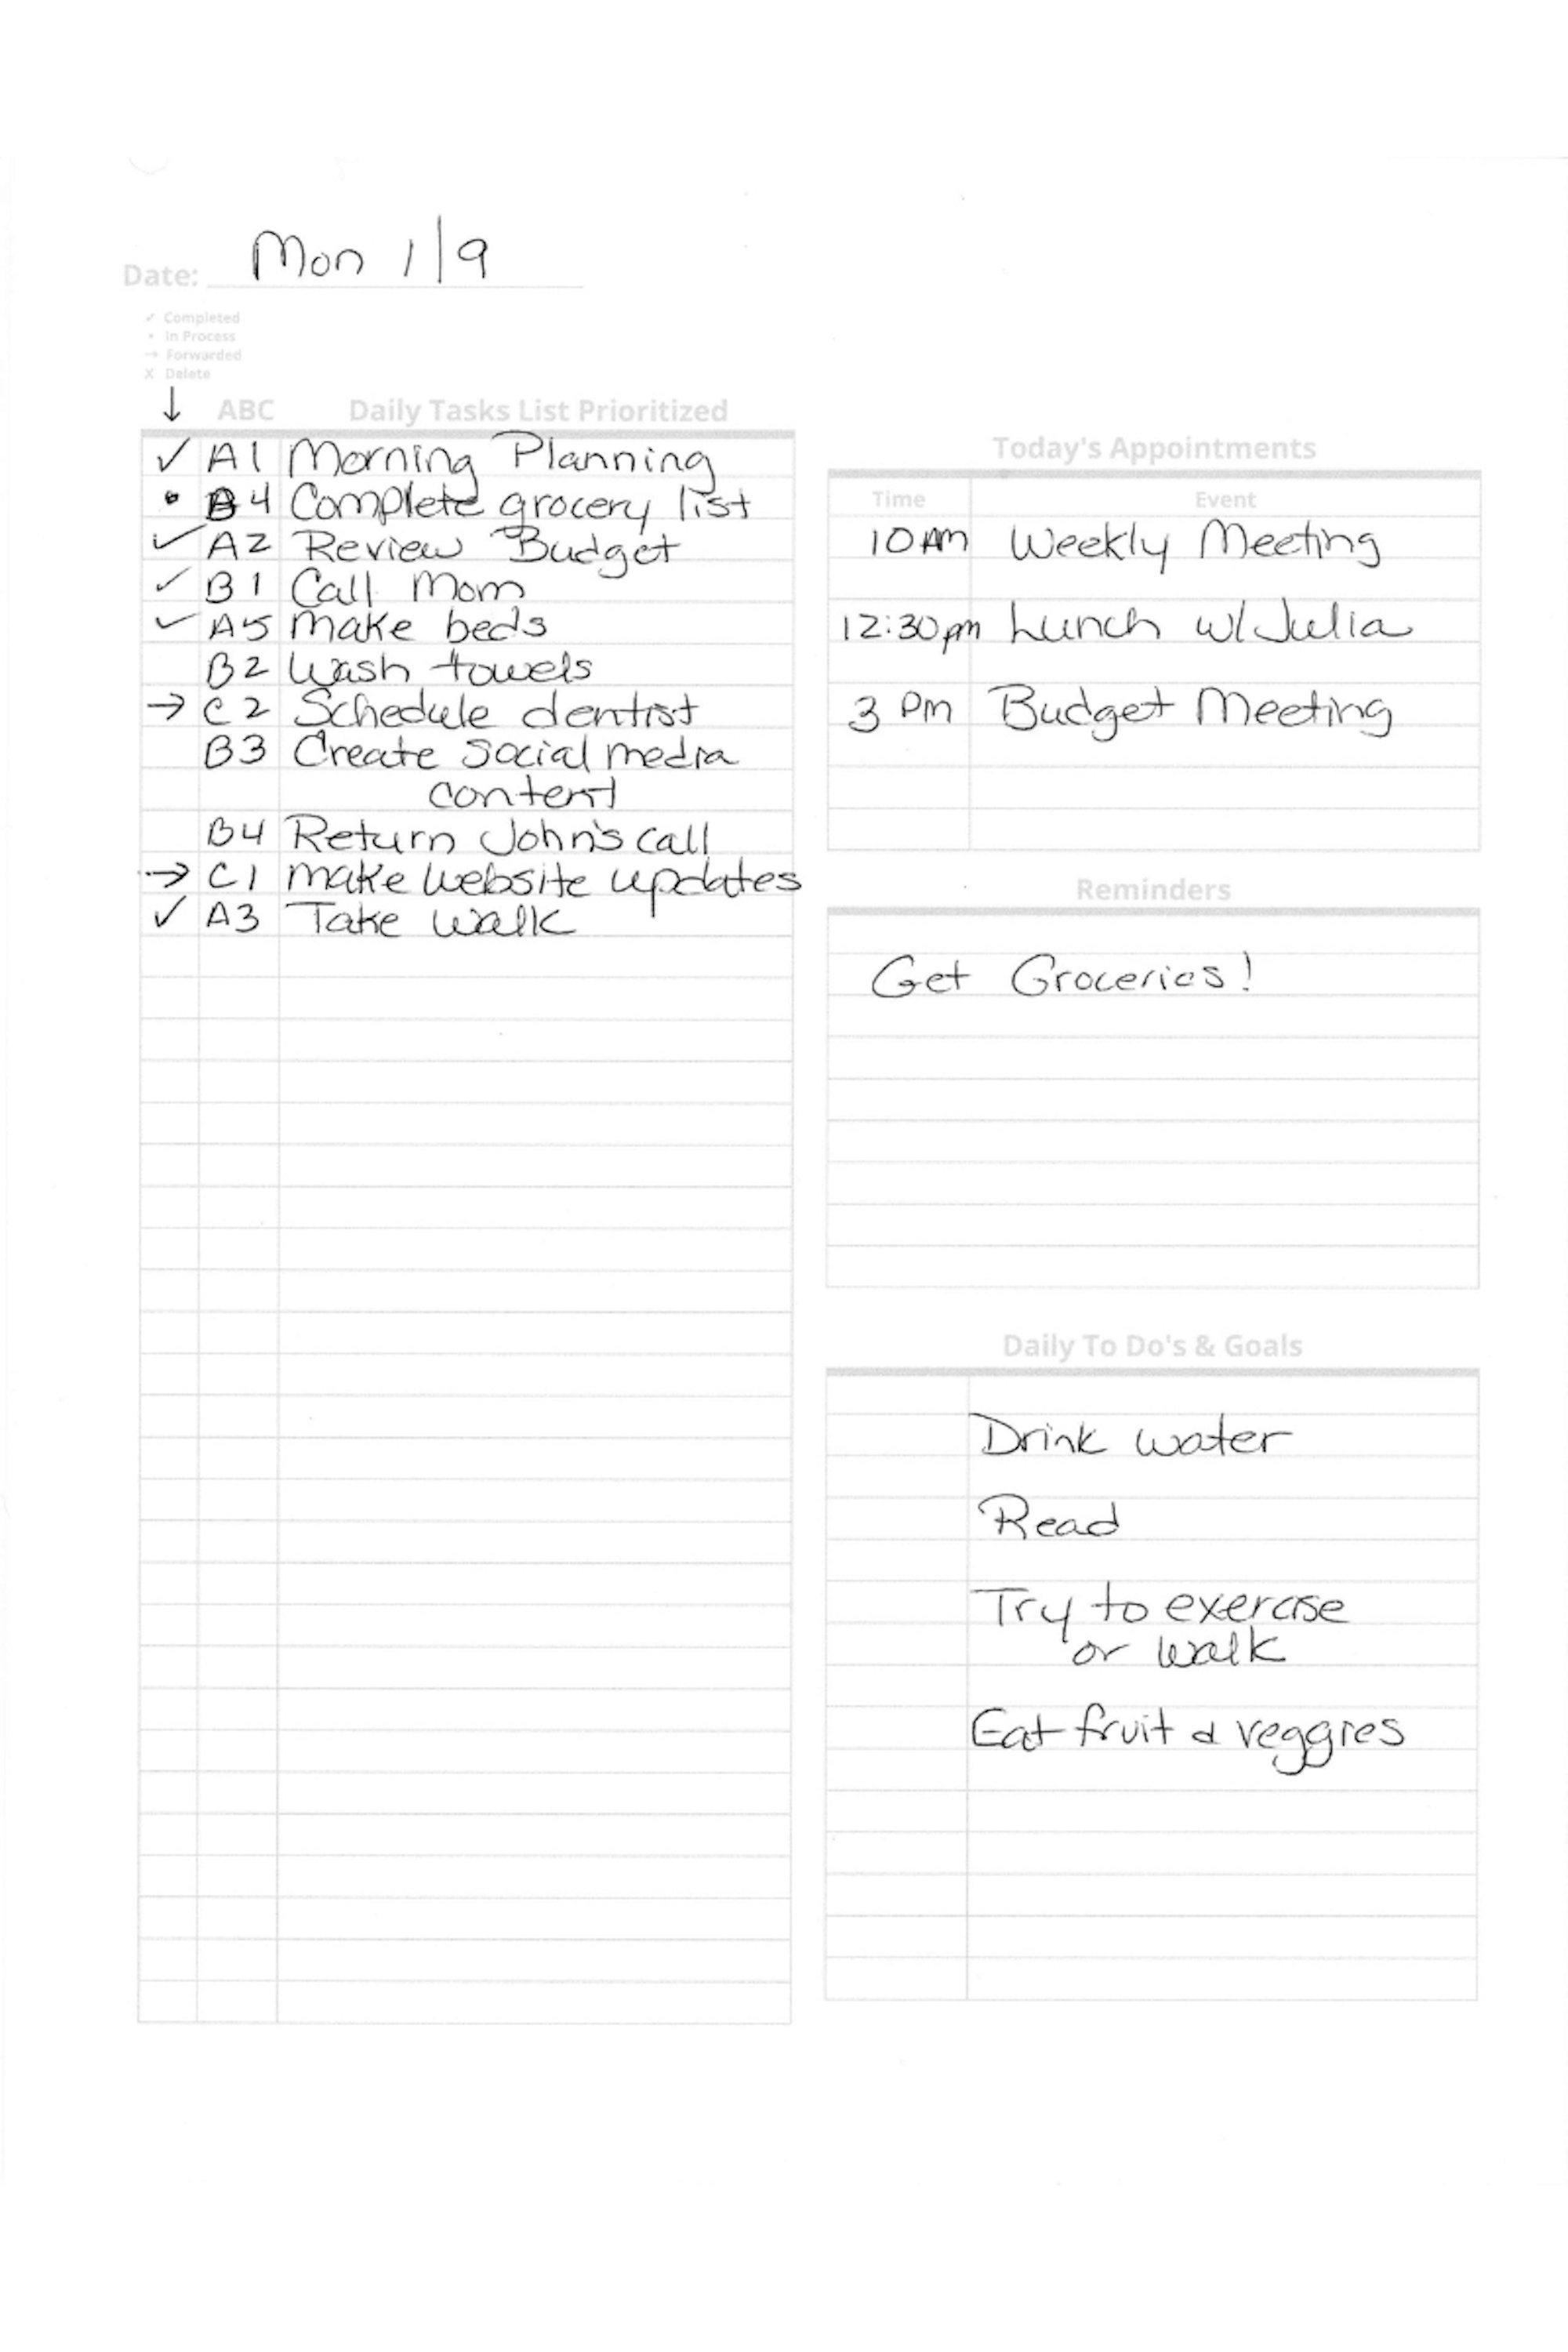 Date: Mon 1/9
✓ Completed
• In Process
→ Forwarded
X Delete
↓ ABC Daily Tasks List Prioritized
✓ A1 Morning Planning
• A4 Complete grocery list
✓ A2 Review Budget
✓ B1 Call Mom
✓ A5 Make beds
B2 Wash towels
→ C2 Schedule dentist
B3 Create social media
content
B4 Return John's call
→ C1 make website updates
✓ A3 Take walk
Today's Appointments
Time Event
10 AM Weekly Meeting
12:30pm Lunch w/ Julia
3 Pm Budget Meeting
Reminders
Get Groceries!
Daily To Do's & Goals
Drink water
Read
Try to exercise
or walk
Eat fruit & veggies